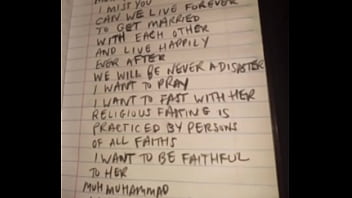 I MISS YOU
CAN WE LIVE FOREVER
TO GET MARRIED
WITH EACH OTHER
AND LIVE HAPPILY
EVER AFTER
WE WILL BE NEVER A DISASTER
I WANT TO PRAY
I WANT TO FAST WITH HER
RELIGIOUS FASTING IS
PRACTICED BY PERSONS
OF ALL FAITHS
I WANT TO BE FAITHFUL
TO HER
MUH MUHAMMAD